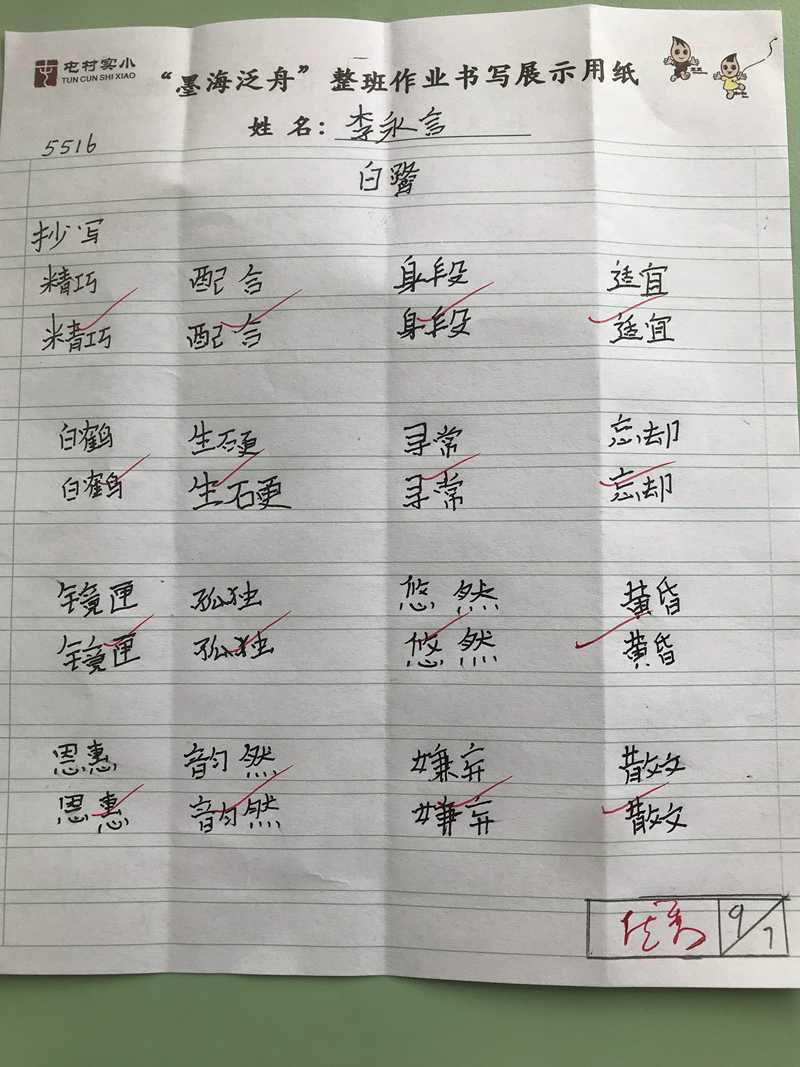 屯村实小
TUN CUN SHI XIAO
“墨海泛舟”整班作业书写展示用纸
姓名：李永言
5516
白鹭
抄写
精巧 配合 身段 适宜
精巧 配合 身段 适宜
白鹤 生硬 寻常 忘却
白鹤 生硬 寻常 忘却
镜匣 孤独 悠然 黄昏
镜匣 孤独 悠然 黄昏
恩惠 韵然 嫌弃 散文
恩惠 韵然 嫌弃 散文
优秀 9/7